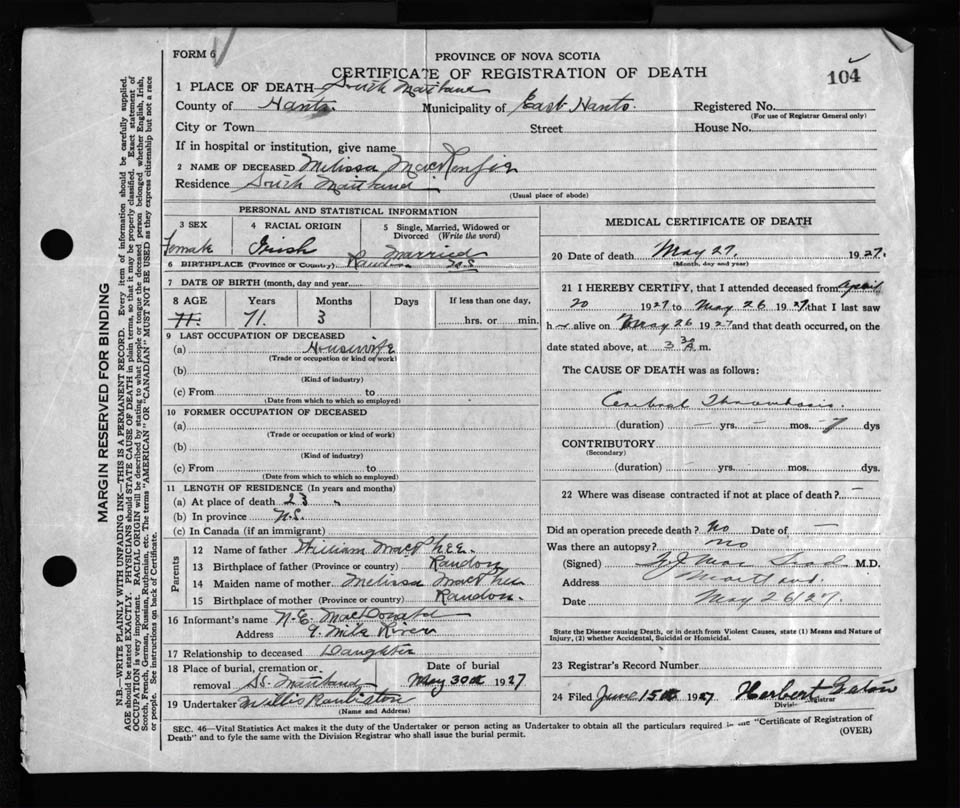 FORM 6
PROVINCE OF NOVA SCOTIA
CERTIFICATE OF REGISTRATION OF DEATH
104
1 PLACE OF DEATH South Maitland
County of Hants Municipality of East Hants. Registered No.
(For use of Registrar General only)
City or Town Street House No.
If in hospital or institution, give name
2 NAME OF DECEASED Melissa MacKenzie
Residence South Maitland
(Usual place of abode)
PERSONAL AND STATISTICAL INFORMATION
3 SEX 4 RACIAL ORIGIN 5 Single, Married, Widowed or Divorced (Write the word)
Female Irish Married
6 BIRTHPLACE (Province or Country) Rawdon N.S
7 DATE OF BIRTH (month, day and year)
8 AGE Years Months Days If less than one day,
71. 71. 3 hrs. or min.
9 LAST OCCUPATION OF DECEASED
(a) Housewife
(Trade or occupation or kind of work)
(b)
(Kind of industry)
(c) From to
(Date from which to which so employed)
10 FORMER OCCUPATION OF DECEASED
(a)
(Trade or occupation or kind of work)
(b)
(Kind of industry)
(c) From to
(Date from which to which so employed)
11 LENGTH OF RESIDENCE (In years and months)
(a) At place of death 23 "
(b) In province N.S.
(c) In Canada (if an immigrant)
Parents
12 Name of father William MacPhee.
13 Birthplace of father (Province or country) Rawdon
14 Maiden name of mother Melissa MacPhee
15 Birthplace of mother (Province or country) Rawdon.
16 Informant's name N.E. MacDonald
Address 9 Mile River
17 Relationship to deceased Daughter
18 Place of burial, cremation or removal So. Maitland Date of burial May 30th 1927
19 Undertaker Willis
(Name and Address)
MEDICAL CERTIFICATE OF DEATH
20 Date of death May 27 1927.
(Month, day and year)
21 I HEREBY CERTIFY, that I attended deceased from April
20 1927 to May 26 1927, that I last saw
her alive on May 26 1927 and that death occurred, on the
date stated above, at 3 30 A m.
The CAUSE OF DEATH was as follows:
Cerebral Thrombosis.
(duration) – yrs. – mos. 7 dys
CONTRIBUTORY
(Secondary)
(duration) – yrs. – mos. dys.
22 Where was disease contracted if not at place of death? –
Did an operation precede death? No Date of –
Was there an autopsy? No
(Signed) M.D.
Address Maitland.
Date May 26/27.
State the Disease causing Death, or in death from Violent Causes, state (1) Means and Nature of
Injury, (2) whether Accidental, Suicidal or Homicidal.
23 Registrar's Record Number
24 Filed June 15th 1927 Herbert Eaton
Division Registrar
SEC. 46—Vital Statistics Act makes it the duty of the Undertaker or person acting as Undertaker to obtain all the particulars required in the "Certificate of Registration of
Death" and to fyle the same with the Division Registrar who shall issue the burial permit.
(OVER)
MARGIN RESERVED FOR BINDING
N.B.—WRITE PLAINLY WITH UNFADING INK—THIS IS A PERMANENT RECORD. Every item of information should be carefully supplied.
AGE should be stated EXACTLY. PHYSICIANS should STATE CAUSE OF DEATH in plain terms, so that it may be properly classified. Exact statement of
OCCUPATION is very important. RACIAL ORIGIN will be described by stating to what people or tongue the deceased person belonged whether English, Irish,
Scotch, French, German, Russian, Ruthenian, etc. The terms "AMERICAN" OR "CANADIAN" MUST NOT BE USED as they express citizenship but not a race
or people. See instructions on back of Certificate.